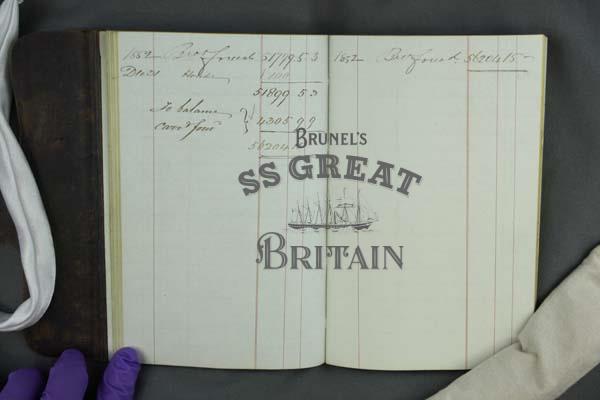 1852 Brot forward 51779 5 3
51899 5 3
To balance
carrd forwd } 4305 9 9
56204
1852 Brot forward 56204 15 -
BRUNEL'S
SS GREAT
BRITAIN